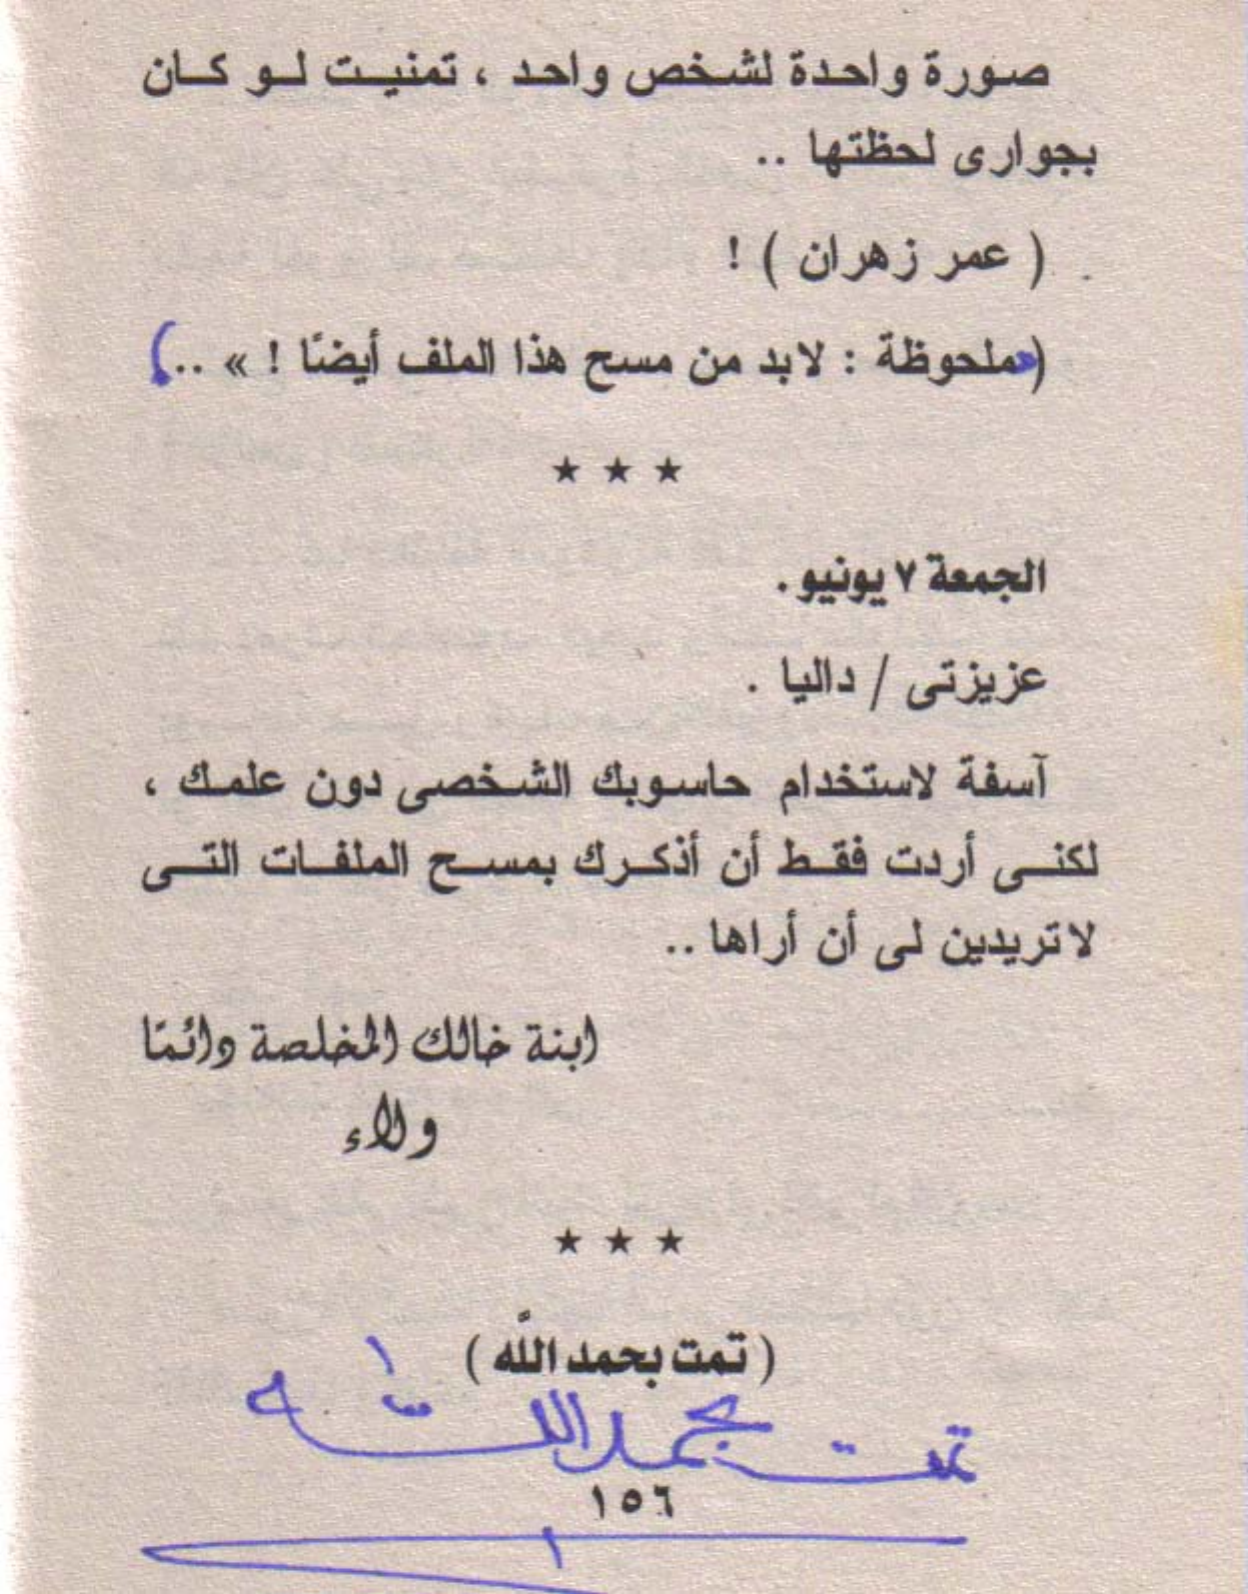 صورة واحدة لشخص واحد ، تمنيت لو كان
بجوارى لحظتها ..
( عمر زهران ) !
( ملحوظة : لابد من مسح هذا الملف أيضًا ! » .. )
★ ★ ★
الجمعة ٧ يونيو .
عزيزتى / داليا .
آسفة لاستخدام حاسوبك الشخصى دون علمك ،
لكنى أردت فقط أن أذكرك بمسح الملفات التى
لا تريدين لى أن أراها ..
ابنة خالك المخلصة دائمًا
ولاء
★ ★ ★
( تمت بحمد اللَّه )
تمت بحمد الله
١٥٦